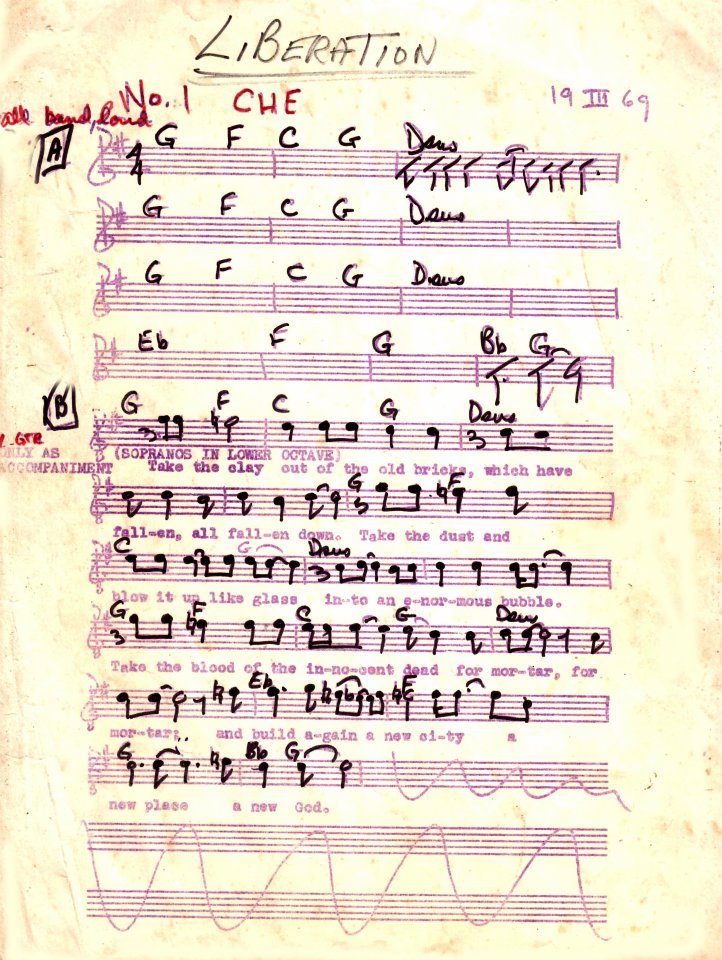 LIBERATION
No. 1 CHE
19 III 69
all band, loud
A
G F C G Dsus
4/4
G F C G Dsus
G F C G Dsus
Eb F G Bb G
B
G F C G Dsus
GTR
ONLY AS (SOPRANOS IN LOWER OCTAVE)
ACCOMPANIMENT Take the clay out of the old bricks, which have
G F
fall-en, all fall-en down. Take the dust and
C G Dsus
blow it up like glass in-to an e-nor-mous bubble.
G F C G Dsus
Take the blood of the in-no-cent dead for mor-tar, for
Eb F
mor-tar; and build a-gain a new ci-ty a
G Bb G
new place a new God.